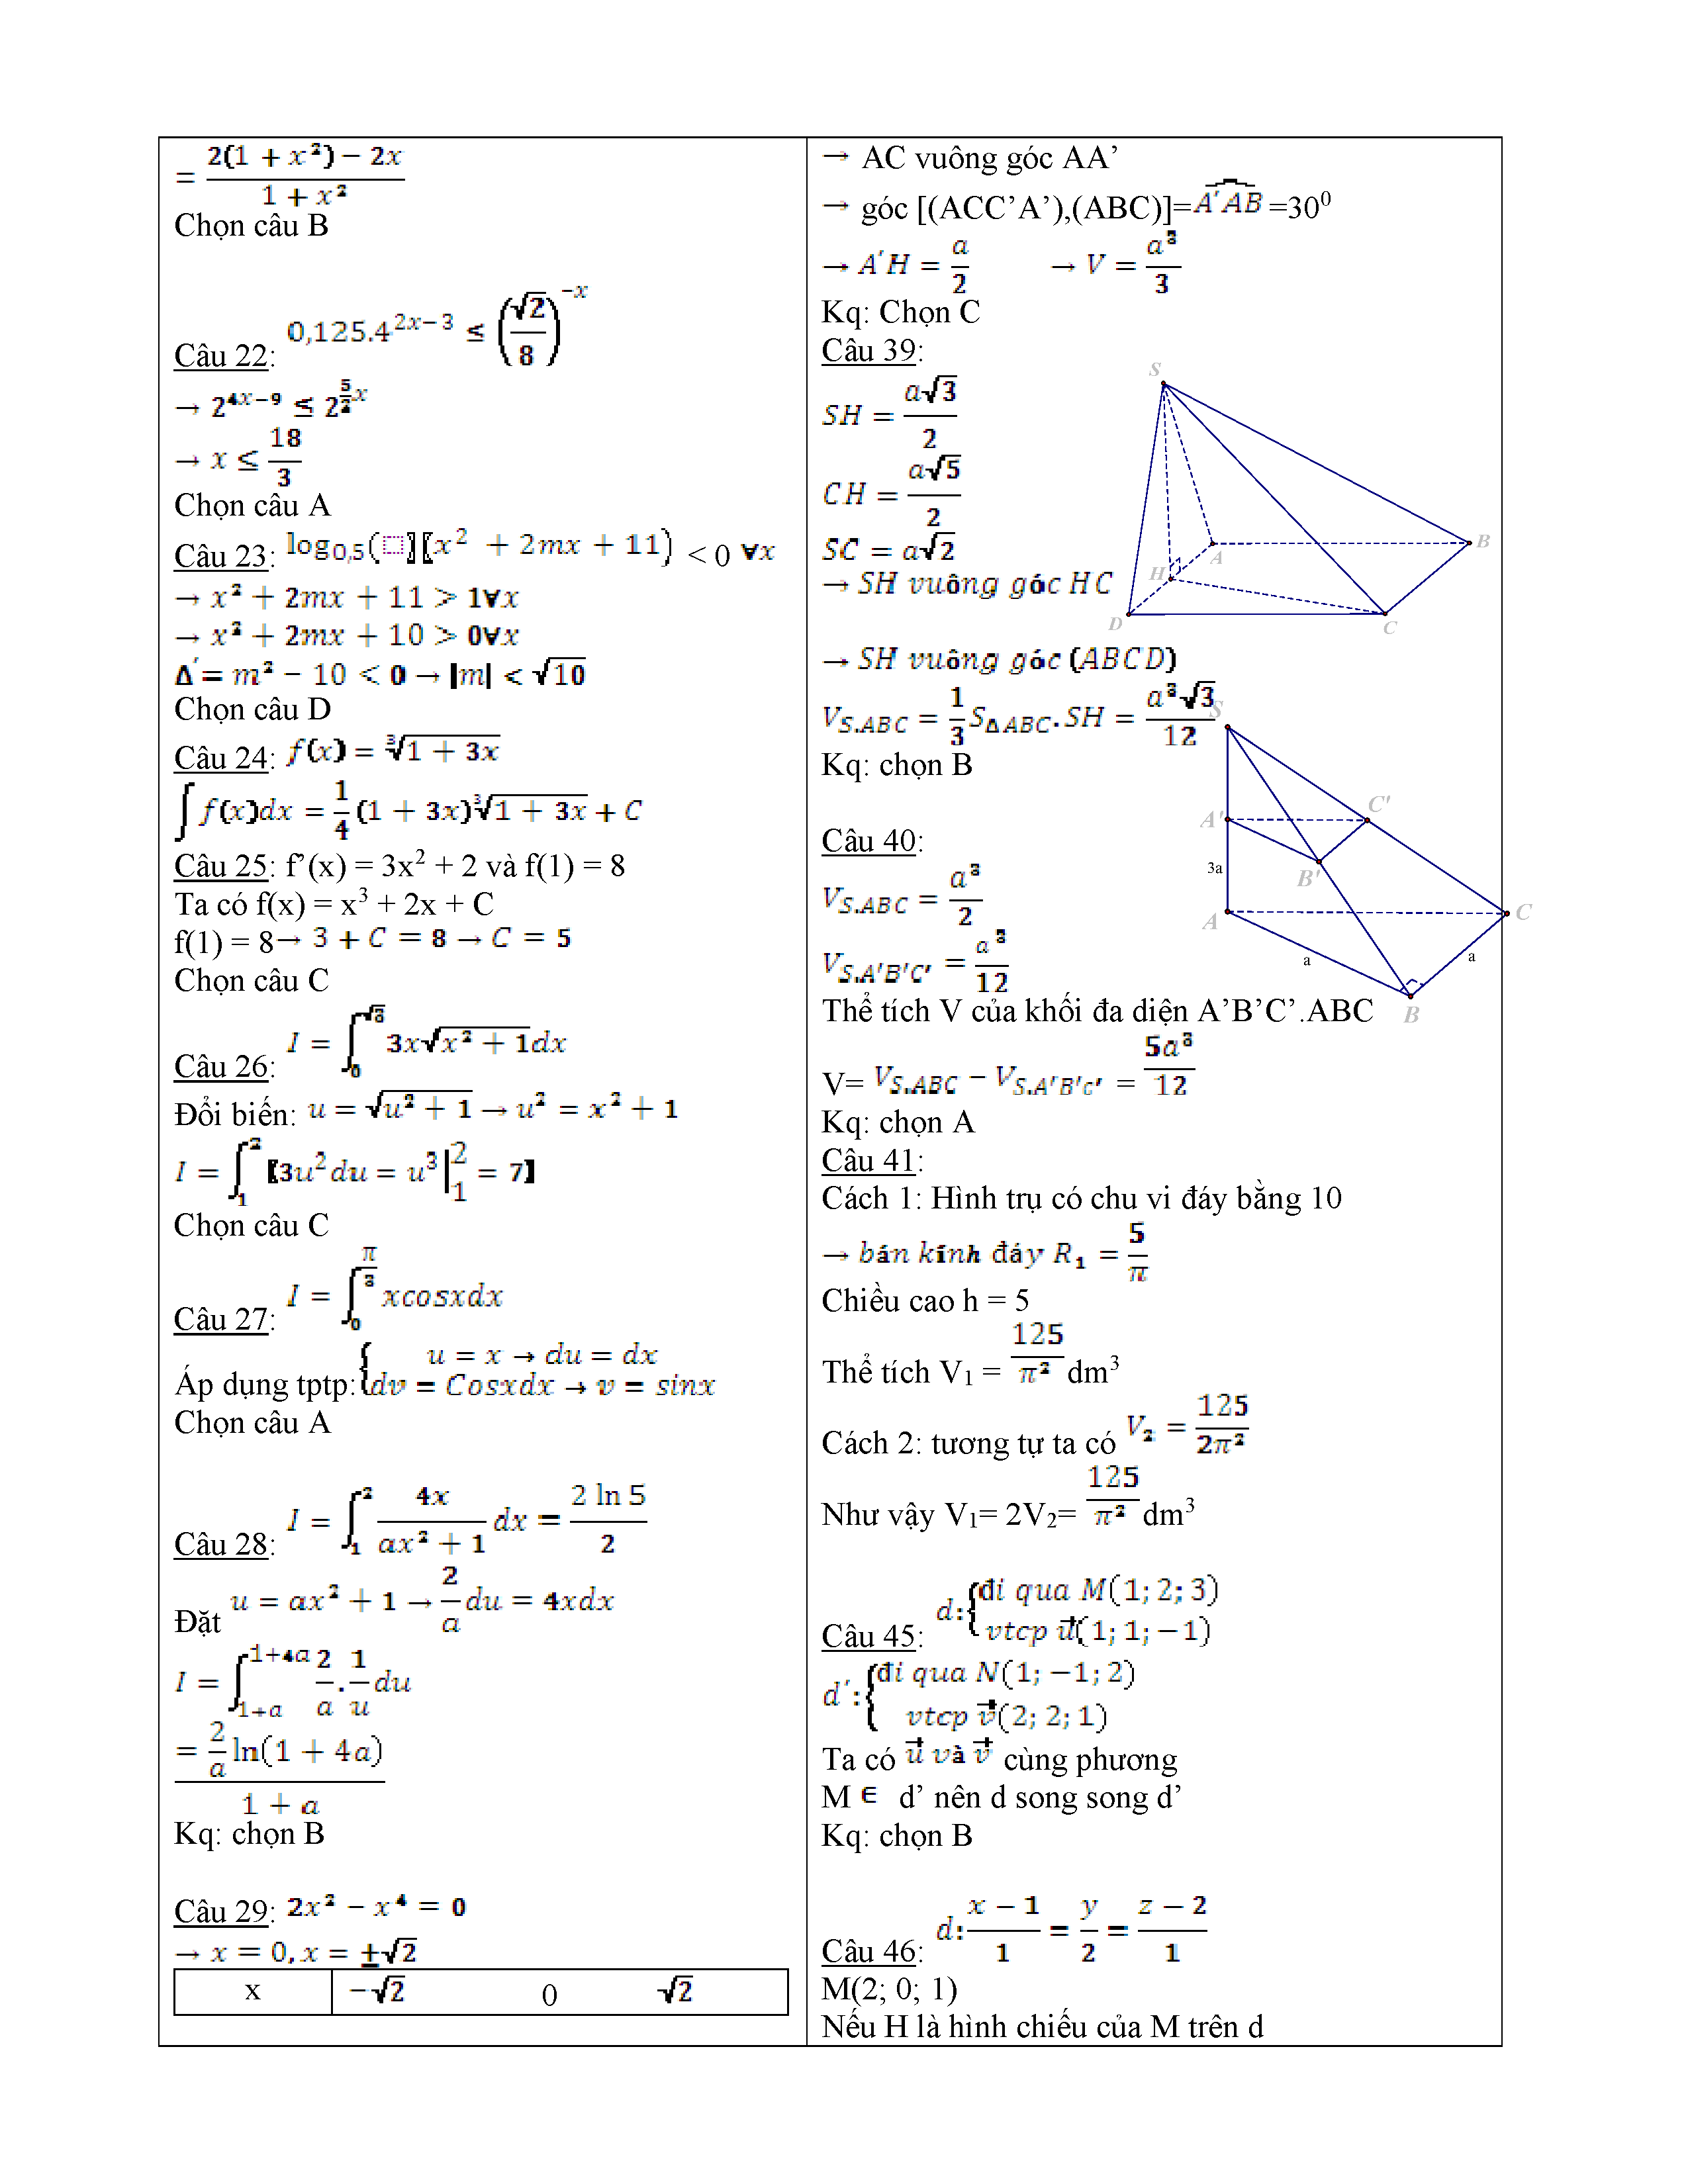 = (2(1 + x²) − 2x)/(1 + x²)
Chọn câu B
Câu 22: 0,125.4^(2x−3) ≤ (√2/8)^(−x)
→ 2^(4x−9) ≤ 2^(5/2 x)
→ x ≤ 18/3
Chọn câu A
Câu 23: log₀,₅(□)[x² + 2mx + 11) < 0 ∀x
→ x² + 2mx + 11 > 1∀x
→ x² + 2mx + 10 > 0∀x
Δ′= m² − 10 < 0 → |m| < √10
Chọn câu D
Câu 24: f(x) = ∛(1 + 3x)
∫f(x)dx = 1/4 (1 + 3x)∛(1 + 3x) + C
Câu 25: f’(x) = 3x² + 2 và f(1) = 8
Ta có f(x) = x³ + 2x + C
f(1) = 8→ 3 + C = 8 → C = 5
Chọn câu C
Câu 26: I = ∫₀^√3 3x√(x² + 1)dx
Đổi biến: u = √(u² + 1) → u² = x² + 1
I = ∫₁² [3u²du = u³|₁² = 7]
Chọn câu C
Câu 27: I = ∫₀^(π/3) xcosxdx
Áp dụng tptp: { u = x → du = dx
dv = Cosxdx → v = sinx
Chọn câu A
Câu 28: I = ∫₁² 4x/(ax² + 1) dx = (2 ln 5)/2
Đặt u = ax² + 1 → 2/a du = 4xdx
I = ∫_(1+a)^(1+4a) 2/a . 1/u du
= 2/a ln(1 + 4a)
1 + a
Kq: chọn B
Câu 29: 2x² − x⁴ = 0
→ x = 0, x = ±√2
x −√2 0 √2
→ AC vuông góc AA’
→ góc [(ACC’A’),(ABC)]=A′AB =30⁰
→ A′H = a/2 → V = a³/3
Kq: Chọn C
Câu 39:
SH = a√3/2
CH = a√5/2
SC = a√2
→ SH vuông góc HC
→ SH vuông góc (ABCD)
V_S.ABC = 1/3 S_ΔABC.SH = a³√3/12
Kq: chọn B
S
A
B
H
D
C
Câu 40:
V_S.ABC = a³/2
V_S.A′B′C′ = a³/12
Thể tích V của khối đa diện A’B’C’.ABC
V= V_S.ABC − V_S.A′B′C′ = 5a³/12
Kq: chọn A
S
A'
C'
B'
3a
A
C
a
a
B
Câu 41:
Cách 1: Hình trụ có chu vi đáy bằng 10
→ bán kính đáy R₁ = 5/π
Chiều cao h = 5
Thể tích V₁ = 125/π² dm³
Cách 2: tương tự ta có V₂ = 125/2π²
Như vậy V₁= 2V₂= 125/π² dm³
Câu 45: d:{đi qua M(1; 2; 3)
vtcp u⃗(1; 1; −1)
d′:{đi qua N(1; −1; 2)
vtcp v⃗(2; 2; 1)
Ta có u⃗ và v⃗ cùng phương
M ∈ d’ nên d song song d’
Kq: chọn B
Câu 46: d: (x − 1)/1 = y/2 = (z − 2)/1
M(2; 0; 1)
Nếu H là hình chiếu của M trên d